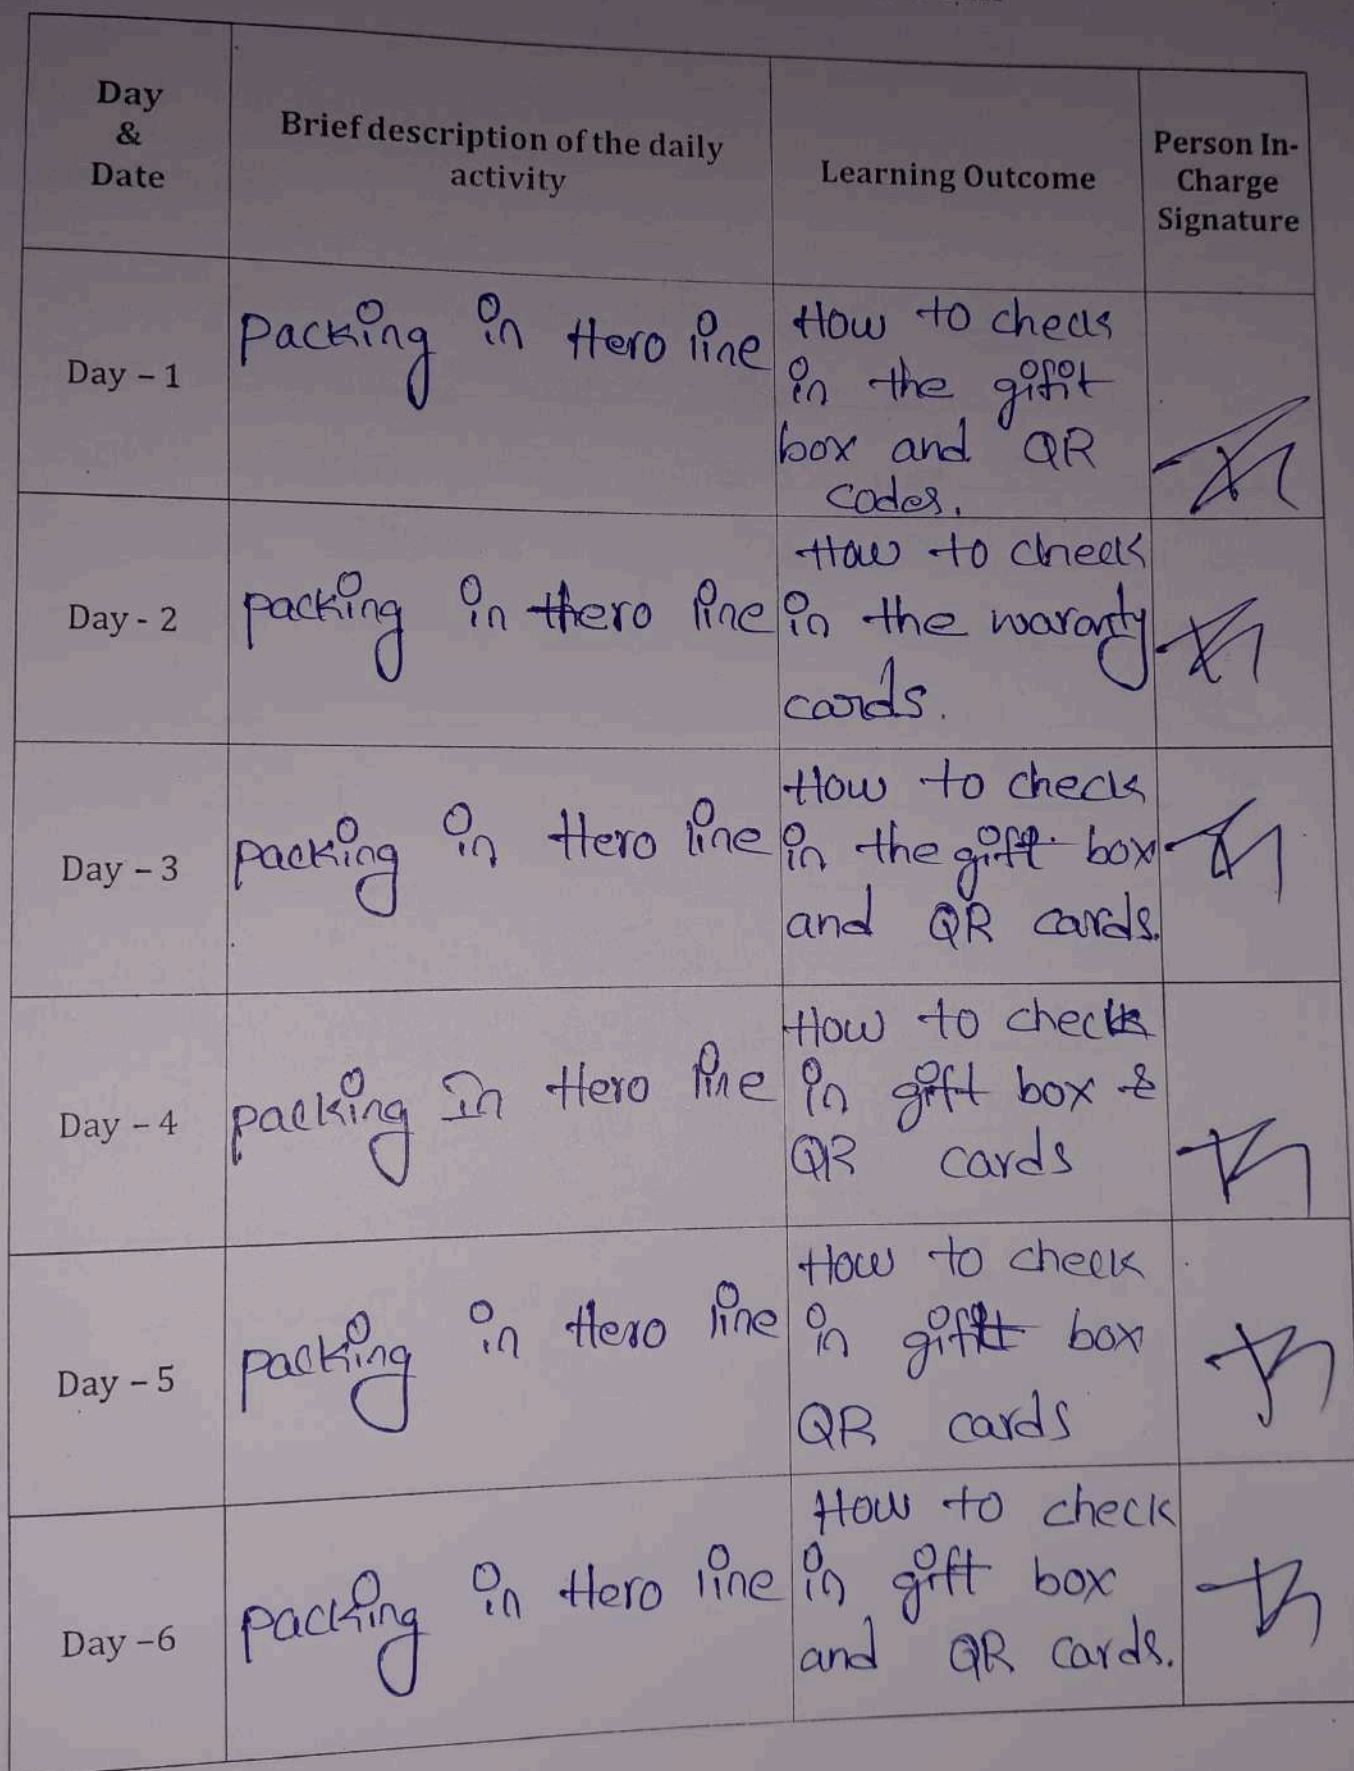 Day
&
Date
Brief description of the daily
activity
Learning Outcome
Person In-
Charge
Signature
Day - 1
packing in Hero line
How to check
in the gifit
box and QR
codes.
Day - 2
packing in Hero line
How to check
in the waranty
cards.
Day - 3
packing in Hero line
How to check
in the gift box
and QR cards.
Day - 4
packing In Hero line
How to check
in gift box &
QR cards
Day - 5
packing in Hero line
How to check
in gift box
QR cards
Day -6
packing in Hero line
How to check
in gift box
and QR cards.